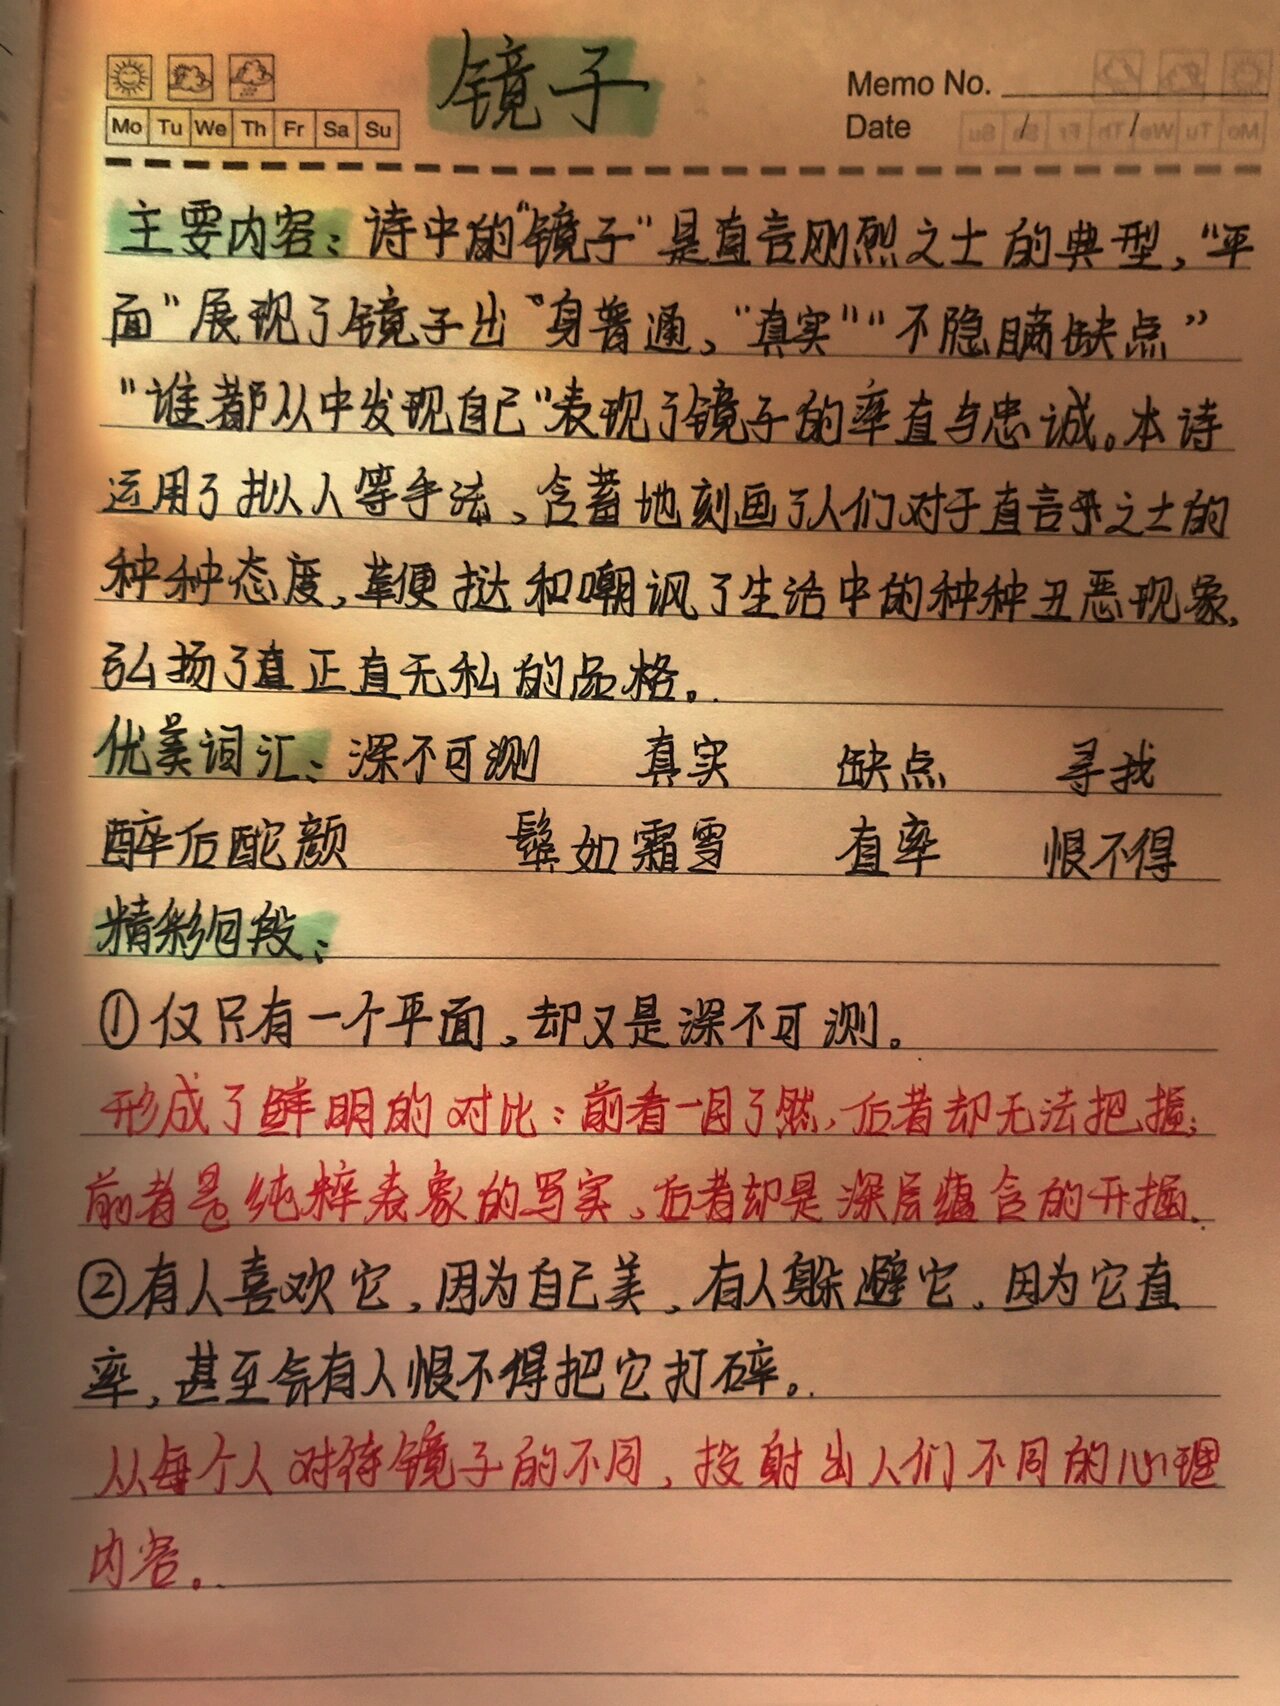 镜子
Memo No.
Mo Tu We Th Fr Sa Su
Date / /
主要内容：诗中的“镜子”是直言刚烈之士的典型，“平
面”展现了镜子出身普通，“真实”“不隐瞒缺点”
“谁都从中发现自己”表现了镜子的率直与忠诚。本诗
运用了拟人等手法，含蓄地刻画了人们对于直言之士的
种种态度，鞭挞和嘲讽了生活中的种种丑恶现象，
弘扬了正直无私的品格。
优美词汇：深不可测 真实 缺点 寻找
醉后酡颜 鬓如霜雪 直率 恨不得
精彩句段：
①仅只有一个平面，却又是深不可测。
形成了鲜明的对比：前者一目了然，后者却无法把握；
前者是纯粹表象的写实，后者却是深层蕴含的开掘。
②有人喜欢它，因为自己美，有人躲避它，因为它直
率，甚至会有人恨不得把它打碎。
从每个人对待镜子的不同，投射出人们不同的心理
内容。